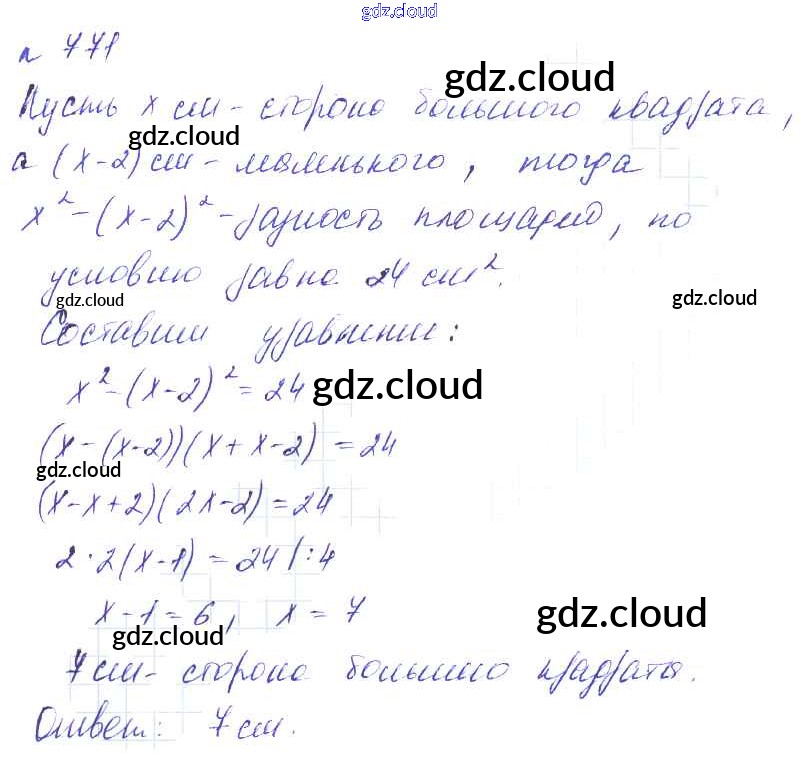 gdz.cloud
n 771
gdz.cloud
Пусть x см - сторона большого квадрата,
gdz.cloud
а (x-2) см - маленького, тогда
x² - (x-2)² - разность площадей, по
условию равна 24 см².
gdz.cloud
gdz.cloud
Составим уравнение:
x² - (x-2)² = 24
gdz.cloud
(x-(x-2))(x+x-2) = 24
gdz.cloud
(x-x+2)(2x-2) = 24
2·2(x-1) = 24 |:4
x-1 = 6, x = 7
gdz.cloud
gdz.cloud
7 см - сторона большого квадрата.
Ответ: 7 см.